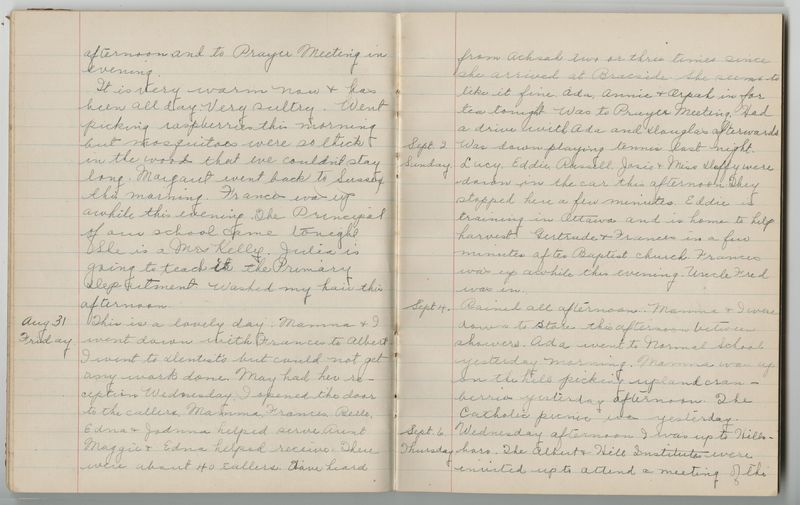 afternoon and to Prayer Meeting in
evening.
It is very warm now & has
been all day. Very sultry. Went
picking raspberries this morning
but mosquitoes were so thick
in the woods that we couldn't stay
long. Margaret went back to Sussex
this morning. Frances was up
awhile this evening. The Principal
of our school came tonight
She is a Mrs Kelly. Julia is
going to teach in the Primary
Department. Washed my hair this
afternoon
Aug 31 This is a lovely day. Mamma & I
Friday went down with Frances to Albert.
I went to dentists but could not get
any work done. May had her re-
ception Wednesday. I opened the door
to the callers. Mamma, Frances, Belle,
Edna & helped serve. Aunt
Maggie & Edna helped receive. There
were about 40 callers. Have heard
from Achsah two or three times since
she arrived at Braeside. She seems to
like it fine. Ada, Annie & in for
tea tonight. Was to Prayer Meeting. Had
a drive with Ada and Douglas afterwards
Sept. 2 Was down playing tennis last night.
Sunday Lucy, Eddie, Russell, Josie & Miss were
down in the car this afternoon. They
stopped here a few minutes. Eddie is
training in Ottawa and is home to help
harvest. Gertrude & Frances in a few
minutes after Baptist church. Frances
was up awhile this evening. Uncle Fred
was in.
Sept 4. Rained all afternoon. Mamma & I were
down to store this afternoon between
showers. Ada went to Normal School
yesterday morning. Mamma was up
on the hill picking upland cran-
berries yesterday afternoon. The
Catholic picnic was yesterday.
Sept. 6 Wednesday afternoon I was up to Hills-
Thursday boro. The Albert & Hill Institutes were
invited up to attend a meeting of the